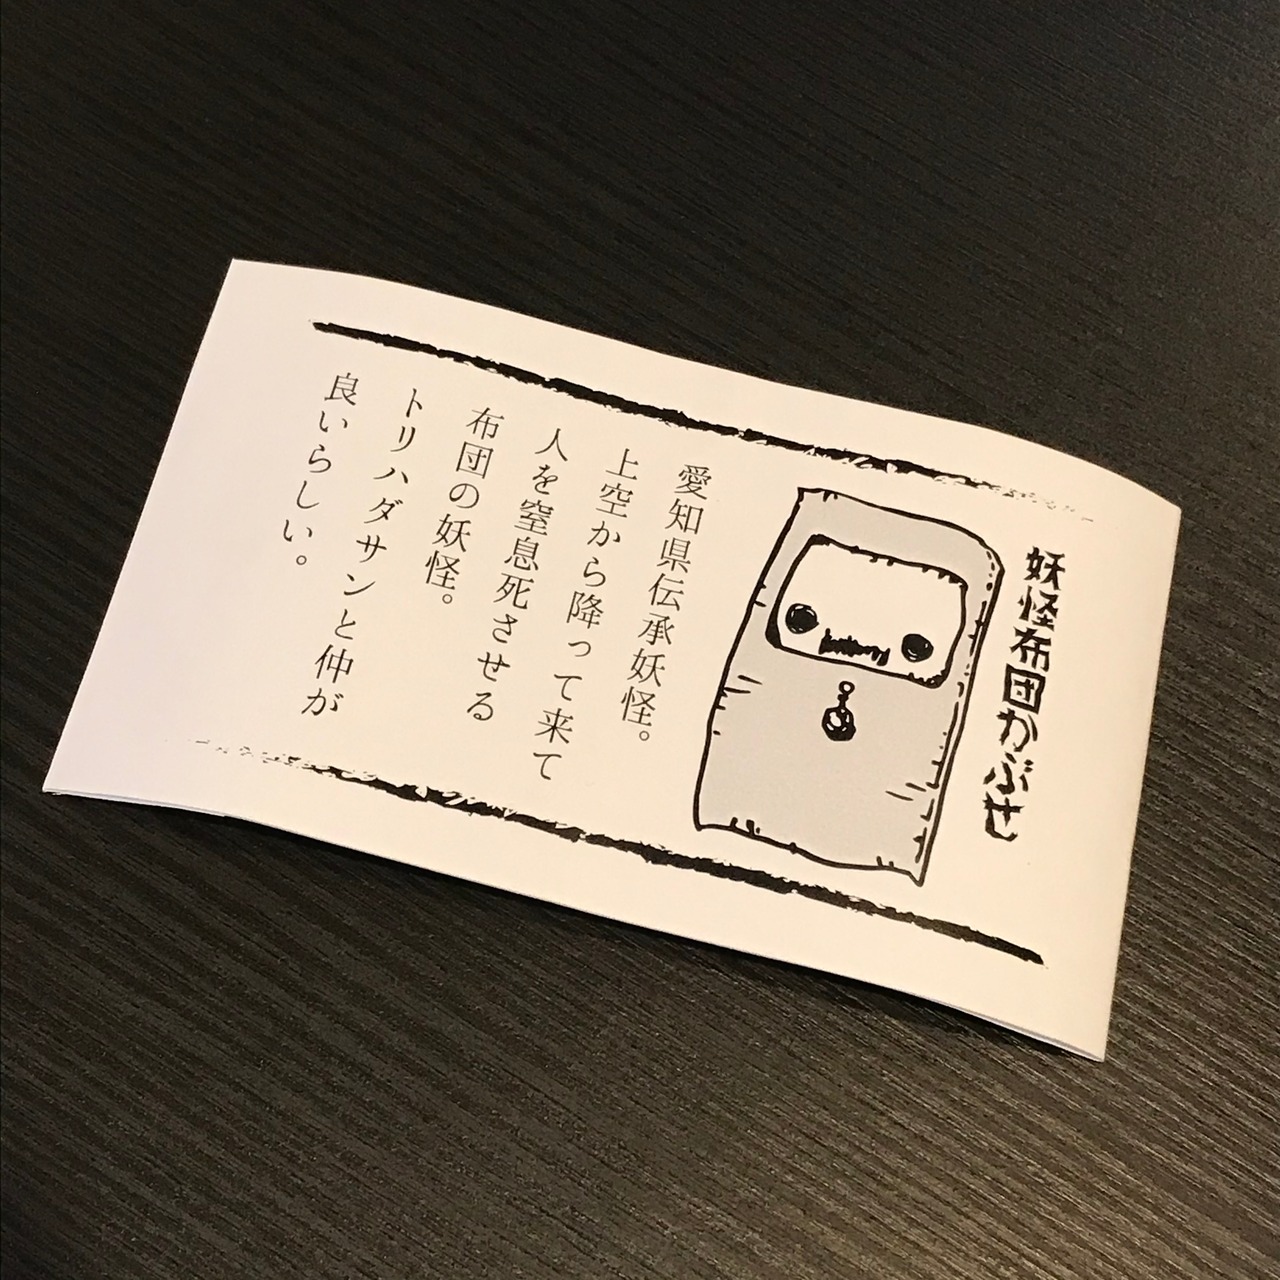 妖怪布団かぶせ
愛知県伝承妖怪。
上空から降って来て
人を窒息死させる
布団の妖怪。
トリハダサンと仲が
良いらしい。